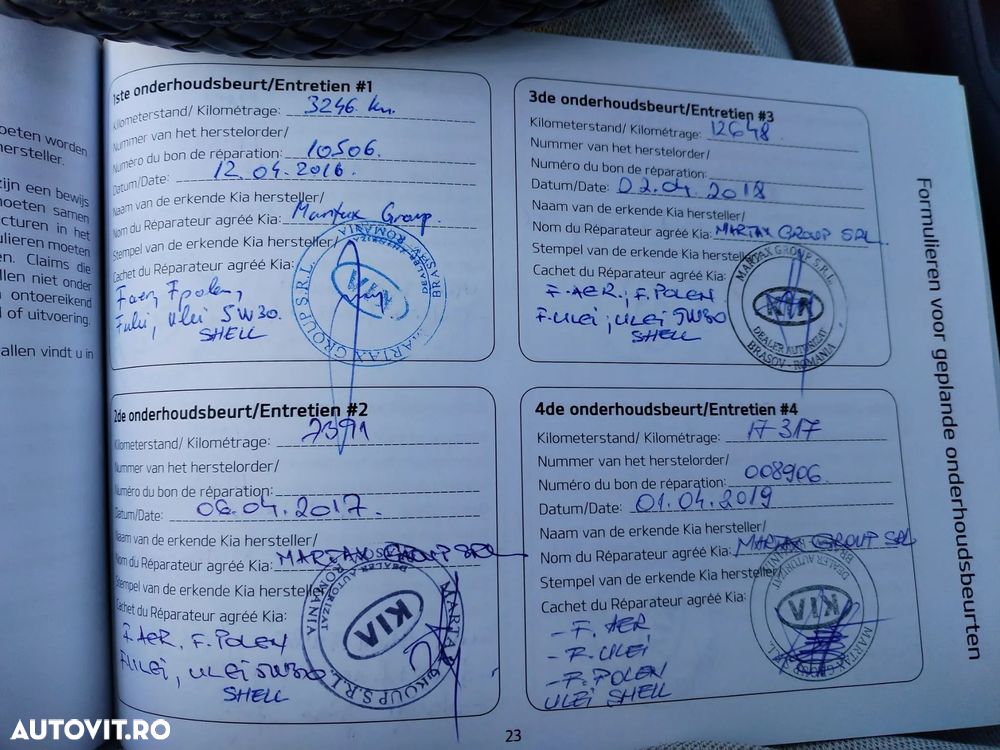 oeten worden
hersteller.
zijn een bewijs
moeten samen
cturen in het
ulieren moeten
en. Claims die
llen niet onder
ontoereikend
of uitvoering.
allen vindt u in
1ste onderhoudsbeurt/Entretien #1
Kilometerstand/ Kilométrage: 3246 km.
Nummer van het herstelorder/
Numéro du bon de réparation: 10506.
Datum/Date: 12.04.2016.
Naam van de erkende Kia hersteller/
Nom du Réparateur agréé Kia: Martax Group.
Stempel van de erkende Kia hersteller/
Cachet du Réparateur agréé Kia:
F aer, F polen,
F ulei, ulei 5W30.
SHELL
MARTAX GROUP S.R.L.
DEALER AUTORIZAT
BRASOV - ROMANIA
KIA
2de onderhoudsbeurt/Entretien #2
Kilometerstand/ Kilométrage: 7391
Nummer van het herstelorder/
Numéro du bon de réparation:
Datum/Date: 06.04.2017.
Naam van de erkende Kia hersteller/
Nom du Réparateur agréé Kia: MARTAX GROUP SRL
Stempel van de erkende Kia hersteller/
Cachet du Réparateur agréé Kia:
F. AER. F. POLEN
F. ULEI, ULEI 5W30
SHELL
MARTAX GROUP S.R.L.
DEALER AUTORIZAT
ROMANIA
KIA
3de onderhoudsbeurt/Entretien #3
Kilometerstand/ Kilométrage: 12648.
Nummer van het herstelorder/
Numéro du bon de réparation:
Datum/Date: 02.04.2018
Naam van de erkende Kia hersteller/
Nom du Réparateur agréé Kia: MARTAX GROUP SRL
Stempel van de erkende Kia hersteller/
Cachet du Réparateur agréé Kia:
F. AER; F. POLEN
F. ULEI; ULEI 5W30
SHELL
MARTAX GROUP S.R.L.
KIA
DEALER AUTORIZAT
BRASOV - ROMANIA
4de onderhoudsbeurt/Entretien #4
Kilometerstand/ Kilométrage: 17 317
Nummer van het herstelorder/
Numéro du bon de réparation: 008906
Datum/Date: 01.04.2019
Naam van de erkende Kia hersteller/
Nom du Réparateur agréé Kia: MARTAX GROUP SRL
Stempel van de erkende Kia hersteller/
Cachet du Réparateur agréé Kia:
- F. AER
- F. ULEI
- F. POLEN
ULEI SHELL
MARTAX GROUP S.R.L.
DEALER AUTORIZAT
KIA
Formulieren voor geplande onderhoudsbeurten
23
AUTOVIT.RO